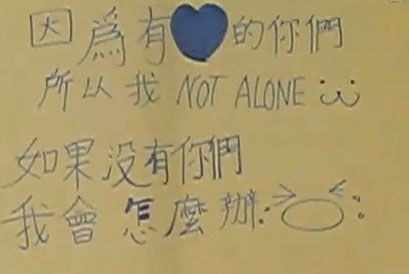 因為有💙的你們
所以我 NOT ALONE
如果没有你們
我會怎麼辦